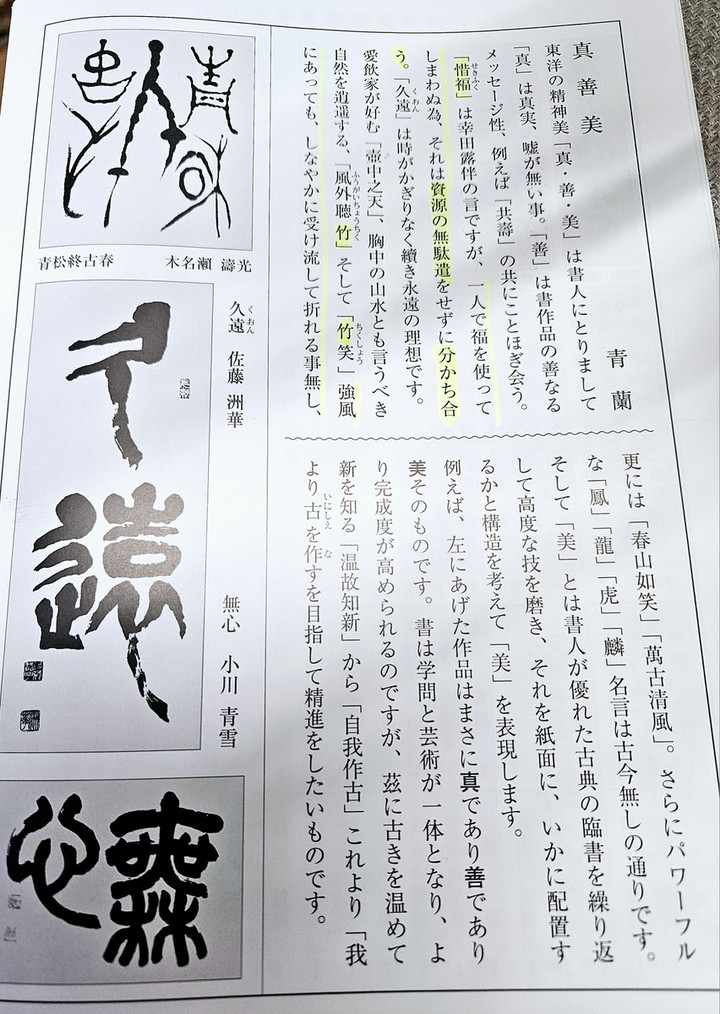 真善美
青蘭
東洋の精神美「真・善・美」は書人にとりまして
「真」は真実、嘘が無い事。「善」は書作品の善なる
メッセージ性、例えば「共壽」の共にことほぎ会う。
「惜福」は幸田露伴の言ですが、一人で福を使って
しまわぬ為、それは資源の無駄遣をせずに分かち合
う。「久遠」は時がかぎりなく續き永遠の理想です。
愛飲家が好む「壺中之天」、胸中の山水とも言うべき
自然を逍遥する、「風外聴竹」そして「竹笑」強風
にあっても、しなやかに受け流して折れる事無し、
更には「春山如笑」「萬古清風」。さらにパワーフル
な「鳳」「龍」「虎」「麟」名言は古今無しの通りです。
そして「美」とは書人が優れた古典の臨書を繰り返
して高度な技を磨き、それを紙面に、いかに配置す
るかと構造を考えて「美」を表現します。
例えば、左にあげた作品はまさに真であり善であり
美そのものです。書は学問と芸術が一体となり、よ
り完成度が高められるのですが、茲に古きを温めて
新を知る「温故知新」から「自我作古」これより「我
より古を作すを目指して精進をしたいものです。
せきふく
くおん
ふうがいちょうちく
ちくしょう
いにしえ
な
木名瀬 濤光
青松終古春
久遠 佐藤 洲華
くおん
久遠
無心 小川 青雪
無心